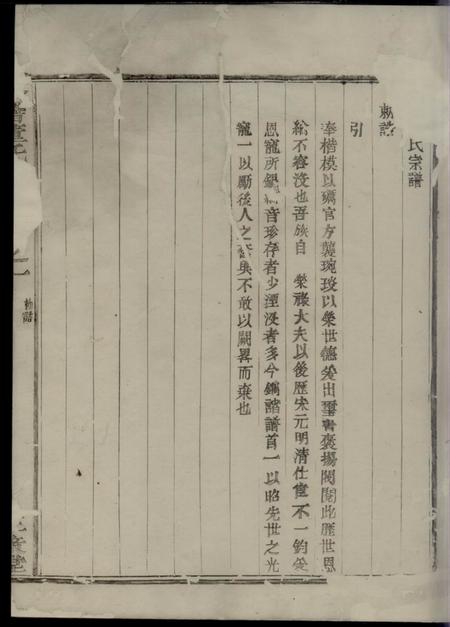 氏宗譜
勅誥
引
奉楷模以礪官方襲琬琰以榮世德爰出璽書褒揚閥閱此歷世恩
綸不容沒也吾族自 榮祿大夫以後歷宋元明清仕宦不一鈞愛
恩寵所錫 音珍存者少湮沒者多今鐫諸譜首一以昭先世之光
寵一以勵後人之 與不敢以闕畧而棄也
勅誥